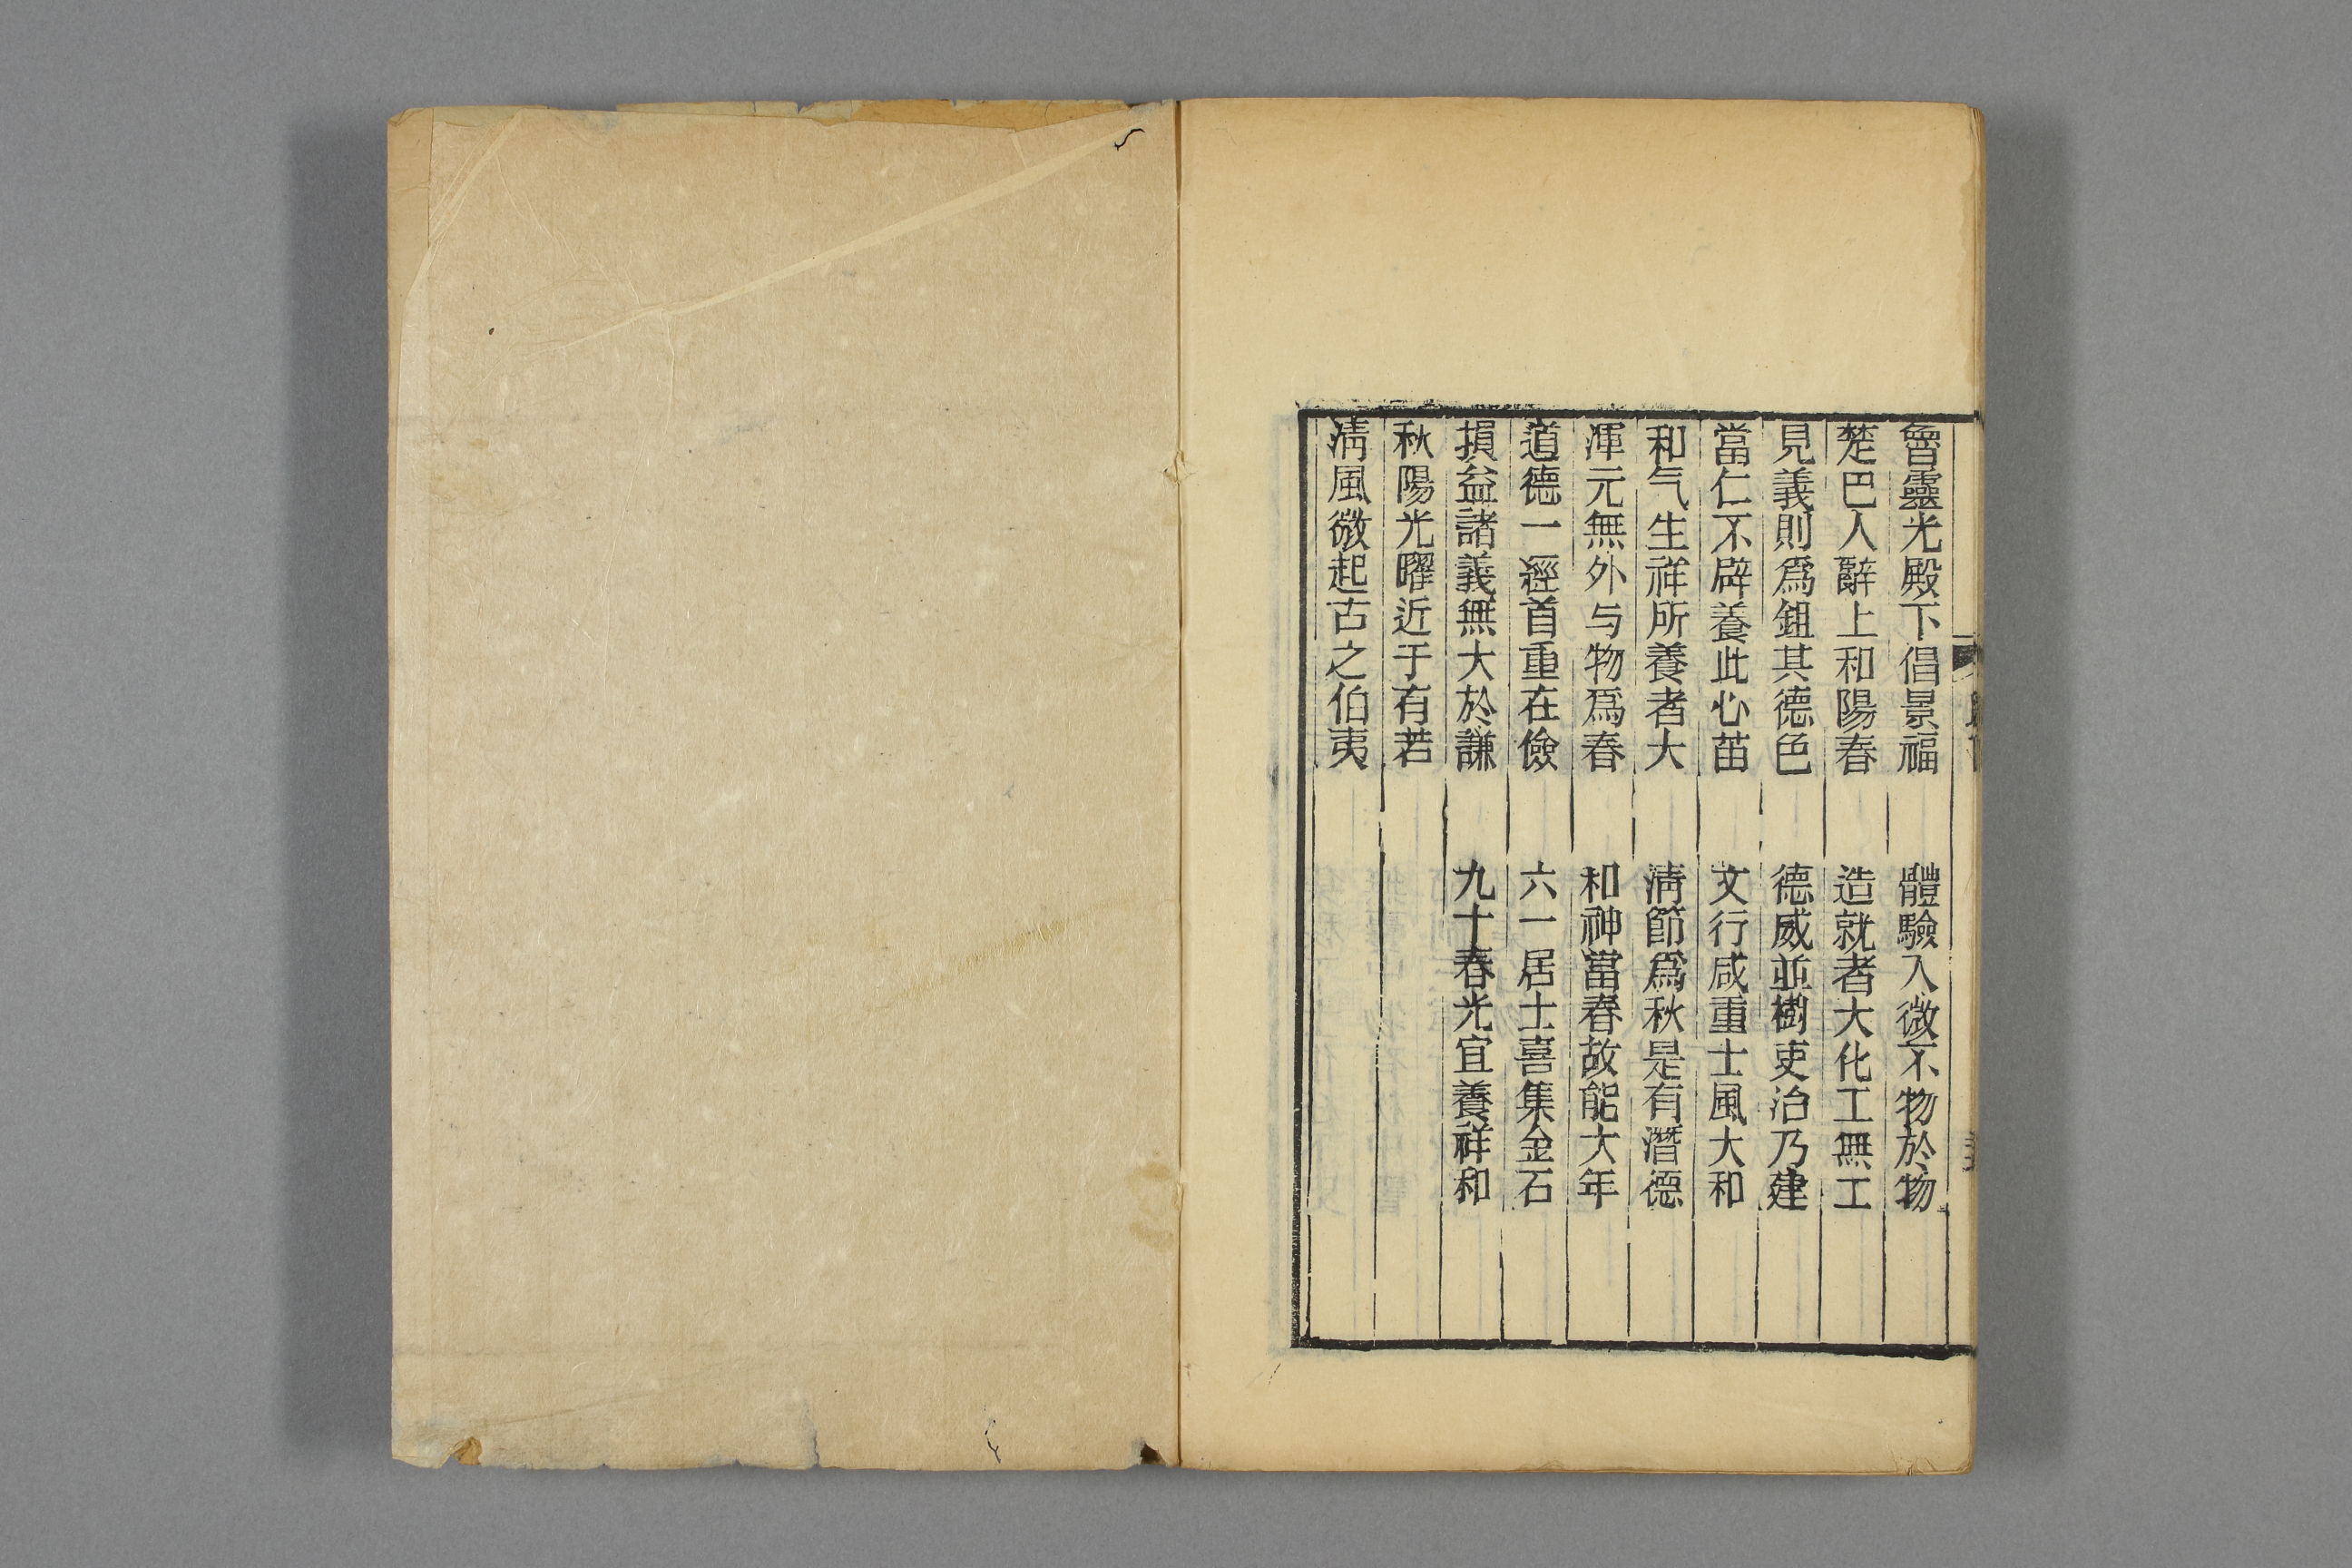 魯靈光殿下倡景福　體驗入微不物於物
楚巴人辭上和陽春　造就者大化工無工
見義則爲鉏其德色　德威並樹吏治乃建
當仁不辟養此心苗　文行咸重士風大和
和气生祥所養者大　淸節爲秋是有潛德
渾元無外与物爲春　和神當春故能大年
道德一經首重在儉　六一居士喜集金石
損益諸義無大於謙　九十春光宜養祥和
秋陽光曜近于有若
淸風微起古之伯夷